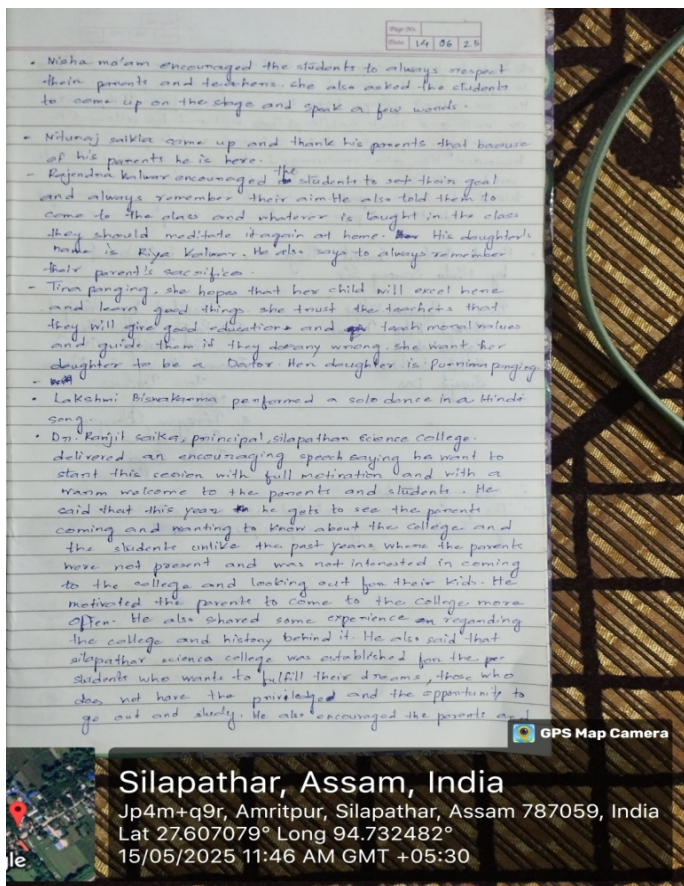 Page No.
Date 14 06 25
• Nisha ma'am encouraged the students to always respect
their parents and teachers. she also asked the students
to come up on the stage and speak a few words.
• Nilunaj saikia came up and thank his parents that because
of his parents he is here.
- Rajendra Kalwar encouraged the students to set their goal
and always remember their aim He also told them to
come to the class and whatever is taught in the class
they should meditate it again at home. His daughter's
name is Riya Kalwar. He also says to always remember
their parent's sacrifice.
- Tina panging. she hopes that her child will excel here
and learn good things. she trust the teachers that
they will give good education and teach moral values
and guide them if they do any wrong. she want her
daughter to be a Dator Her daughter is Purnima panging.
-
• Lakshmi Biswakarma performed a solo dance in a Hindi
song.
• Dr. Ranjit saika, principal, silapathar science college.
delivered an encouraging speech saying he want to
start this session with full motivation and with a
warm welcome to the parents and students. He
said that this year he gets to see the parents
coming and wanting to know about the college and
the students unlike the past years where the parents
were not present and was not interested in coming
to the college and looking out for their kids. He
motivated the parents to come to the college more
often. He also shared some experience regarding
the college and history behind it. He also said that
silapathar science college was established for the
students who wants to fulfill their dreams, those who
does not have the priviledged and the opportunity to
go out and study. He also encouraged the parents and
GPS Map Camera
Silapathar, Assam, India
Jp4m+q9r, Amritpur, Silapathar, Assam 787059, India
Lat 27.607079° Long 94.732482°
15/05/2025 11:46 AM GMT +05:30
gle